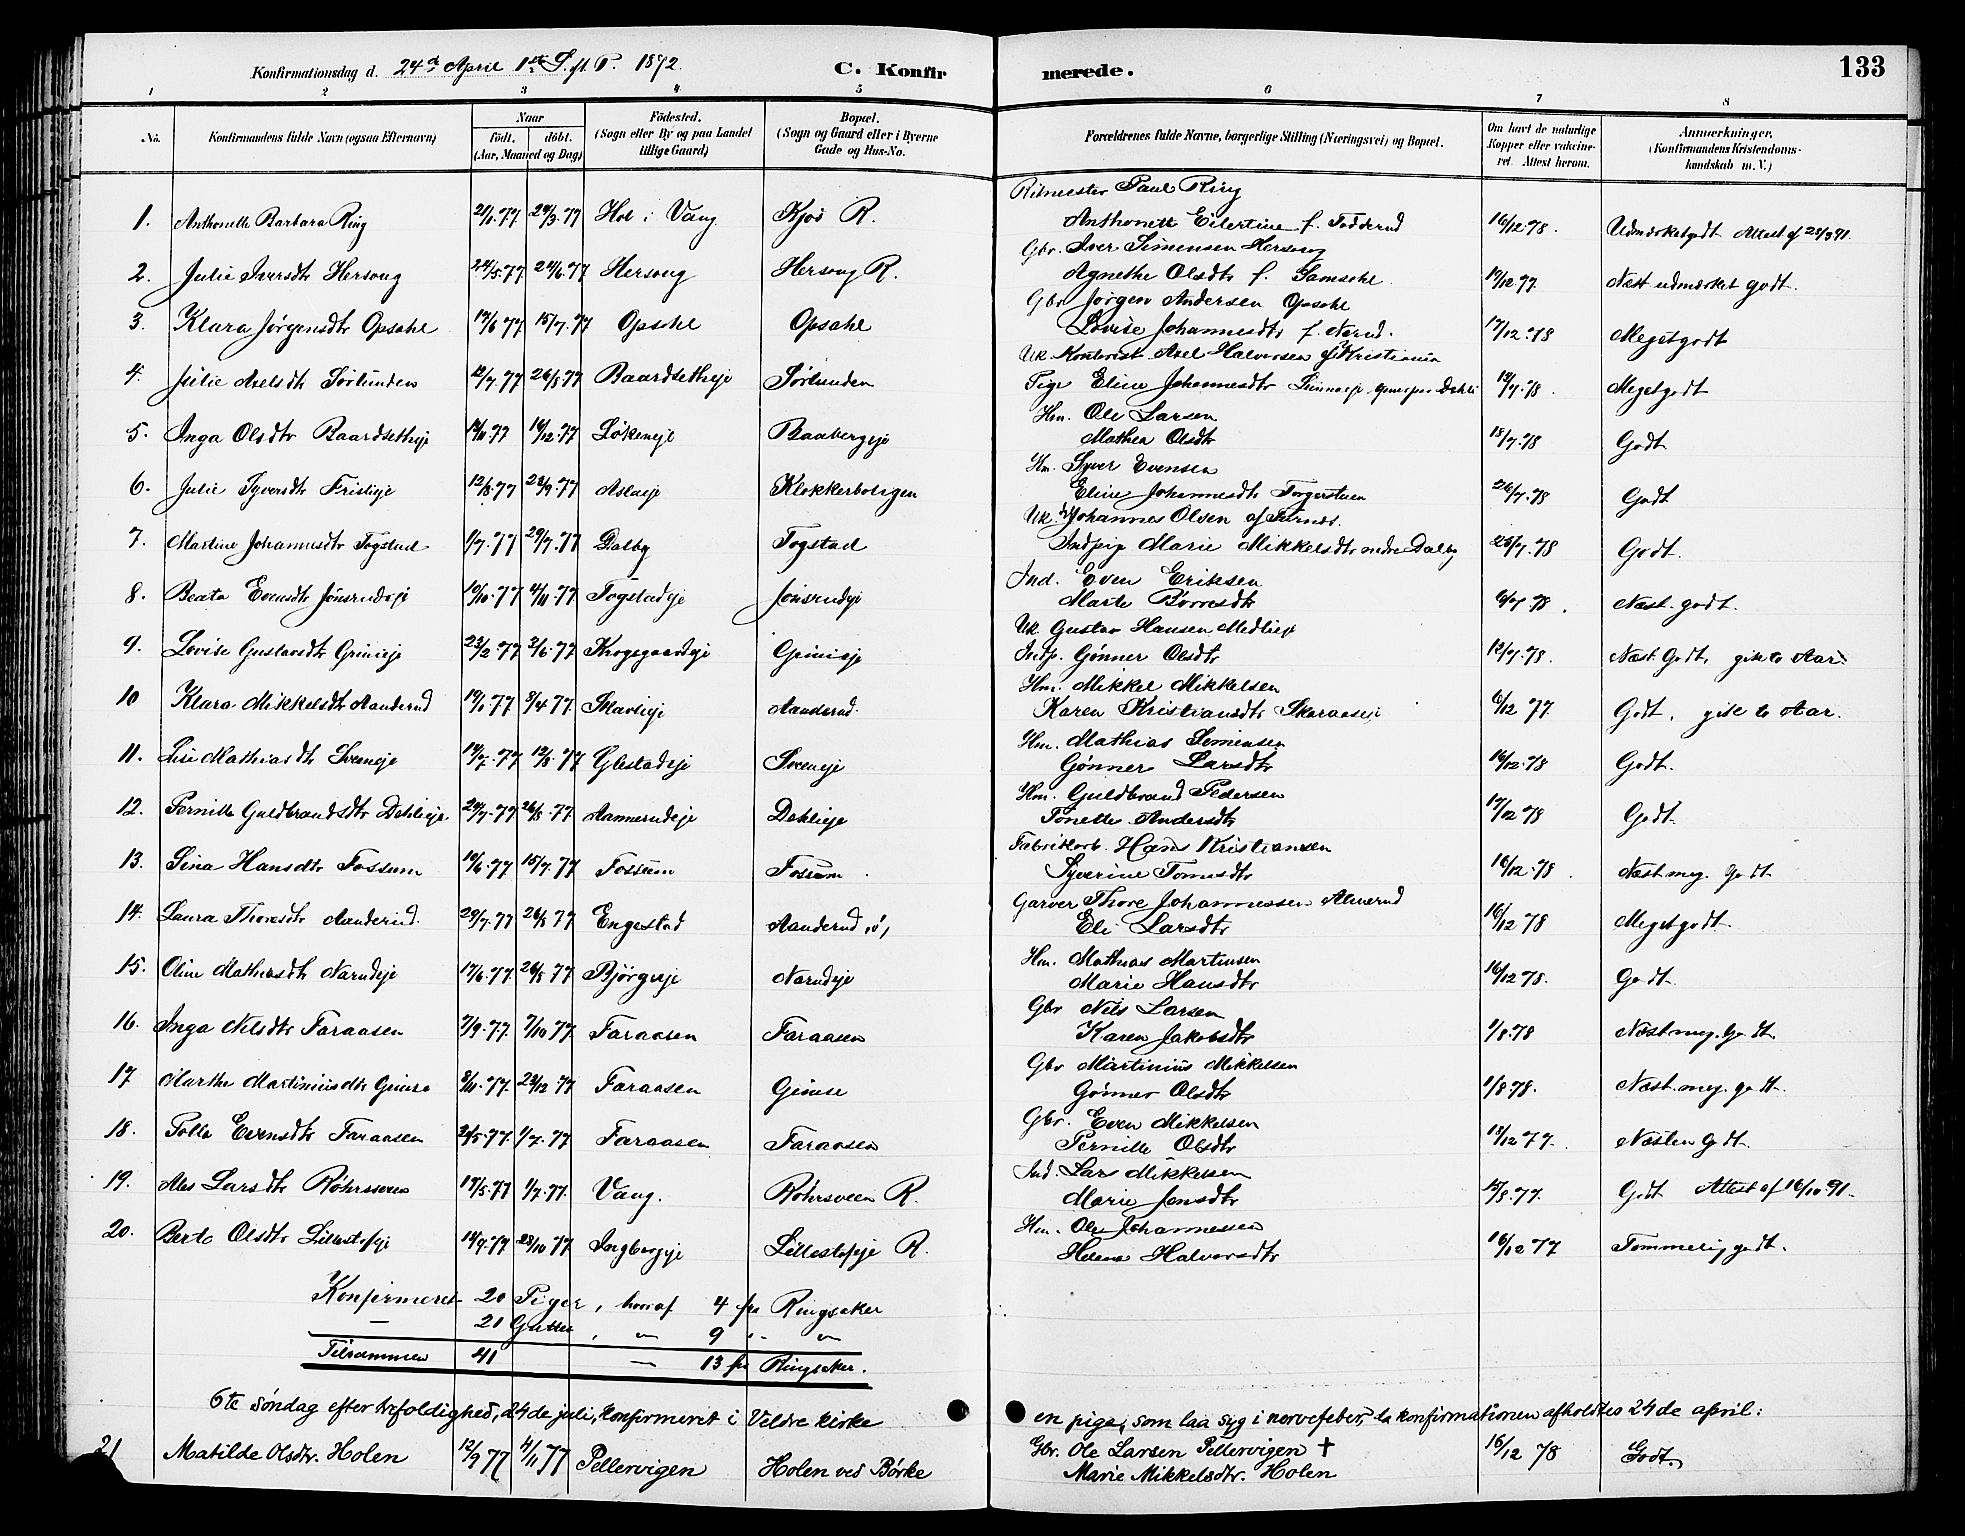 Konfirmationsdag d. 24de April 1ste S. ft. P. 1892.
C. Konfirmerede.
133
1 2 3 4 5 6 7 8
No.
Konfirmandens fulde Navn (ogsaa Efternavn)
Naar
födt. döbt.
(Aar, Maaned og Dag)
Födested.
(Sogn eller By og paa Landet
tillige Gaard)
Bopæl.
(Sogn og Gaard eller i Byerne
Gade og Hus-No.
Forældrenes fulde Navne, borgerlige Stilling (Næringsvei) og Bopæl.
Om havt de naturlige
Kopper eller vaccine-
ret. Attest herom.
Anmærkninger.
(Konfirmandens Kristendoms-
kundskab m. V.)
Ritmester Paul Ring
1. Anthonette Barbara Ring 21/1.77 Hol i Vang Kjos R. Anthonette Eilertine f. Fodderud 16/12.78. Udmærketgodt
Gbr. Iver Simensen Hersoug
2. Julie Iversdtr Hersoug 24/5.77 24/6.77 Hersoug Hersoug R. Agnethe Olsdtr f. 19/12 77 Næst udmærket godt.
Gbr Jørgen Andersen Opsahl
3. Klara Jørgensdtr Opsahl 17/6 77 15/7.77 Opsahl Opsahl Lovise Johannesdtr f. Narud. 17/12.78 Megetgodt
Uk. Kontorist Axel Halvorsen af Kristiania
4. Julie Axelsdtr Sørlunden 26/8 77 Baardsetheje Sørlunden Pige Eline Johannesdtr Megetgodt
Hm. Ole Larsen
5. Inga Olsdtr Baardsetheje 16/12.77 Løkeneje Mathea Olsdtr 18/7.78 Godt
Hm. Syver Evensen
6. Julie Syversdtr Fristieje 12/8.77 Aslaeje Klokkerboligen Eline Johannesdtr Torgerstuen 26/7.78 Godt
Uk. Johannes Olsen af Furnes.
7. Martine Johannesdtr Togstad 1/7.77 29/7.77 Dalby Togstad Indpige Marie Mikkelsdtr nedre Dalby 25/7.78 Godt.
Ind. Even Eriksen
8. Beata Evensdtr Jønsrudeje 10/10.77 4/11.77 Togstadeje Jønsrudeje Marte Børresdtr Næst. godt.
Uk Gustav Hansen Medlieje
9. Lovise Gustavsdtr Grinieje 23/2 77 3/6.77 Krogsgaardeje Grinieje Indp. Gønner Olsdtr 12/7.78. Næst Godt, gik to Aar.
Hm. Mikkel Mikkelsen
10 Klara Mikkelsdtr Aanderud 19/1 77 8/4 77 Skavlieje Aanderud Karen Kristiansdtr 6/12 77 Godt, gik to Aar.
Hm. Mathias Simensen
11. Lise Mathiasdtr Sveeneje 12/8.77 Glestadeje Sveeneje Gønner Larsdtr 16/12.78 Godt.
Hm. Guldbrand Pedersen
12. Pernille Guldbrandsdtr Dehlieje 29/7.77 26/8.77 Aannerudeje Dehlieje Tonette Andersdtr 17/12 78 Godt.
Fabrikarb. Hans Kristiansen
13. Sina Hansdtr Fossum 10/6.77 15/7.77 Fossum Fossum Syverine Tomasdtr 16/12.78. Næst meg. Godt.
Garver Thore Johannessen Aluerud
14. Laura Thoresdtr Aanderud. 29/7.77 26/8 77 Engestad Aanderud Eli Larsdtr 16/12 78 Megetgodt.
Hm. Mathias Martinsen
15. Oline Mathiasdtr Narudeje 17/6.77 26/8 77 Bjørgeje Narudeje Marie Hansdtr 16/12 78. Godt.
Gbr Nils Larsen
16. Inga Nilsdtr Faraasen 7/9.77. 7/10 77. Faraasen Faraasen Karen Jakobsdtr 1/8.78 Næst meg. Godt.
Gbr Martinius Mikkelsen
17 Marthe Martiniusdtr Grinse 8/11.77. 23/12 77 Faraasen Grinse Gønner Olsdtr 1/8.78. Næst. meg. godt.
Gbr. Even Mikkelsen
18. Polla Evensdtr Faraasen 1/7.77 Faraasen Faraasen Pernille Olsdtr 18/12 77. Næsten Godt.
Ind. Lars Mikkelsen
19. Ales Larsdtr Røhrsveen 17/5.77 1/7.77. Vang. Røhrsveen R. Marie Jonsdtr Godt Attest af 16/10 91.
Hm. Ole Johannessen
20. Berte Olsdtr Lillestofeje 19/9.77 28/10 77 Ingbergeje Lillestofeje R. Helene Halvorsdtr 16/12 77 Temmelig godt.
Konfirmeret 20 Piger, hvoraf 4 fra Ringsaker
— 21 Gutter, " 9 " "
Tilsammen 41 — 13 fra Ringsaker.
6te søndag efter trefoldighed, 24de juli, konfirmeret i Veldre kirke en pige, som laa syg i nervefeber, da konfirmationen afholdtes 24de april:
Gbr. Ole Larsen Pellervigen †
21 Matilde Olsdtr. Holen 12/9 77 4/11 77 Pellervigen Holen ved Børke Marie Mikkelsdtr. Holen 16/12 78 Godt.